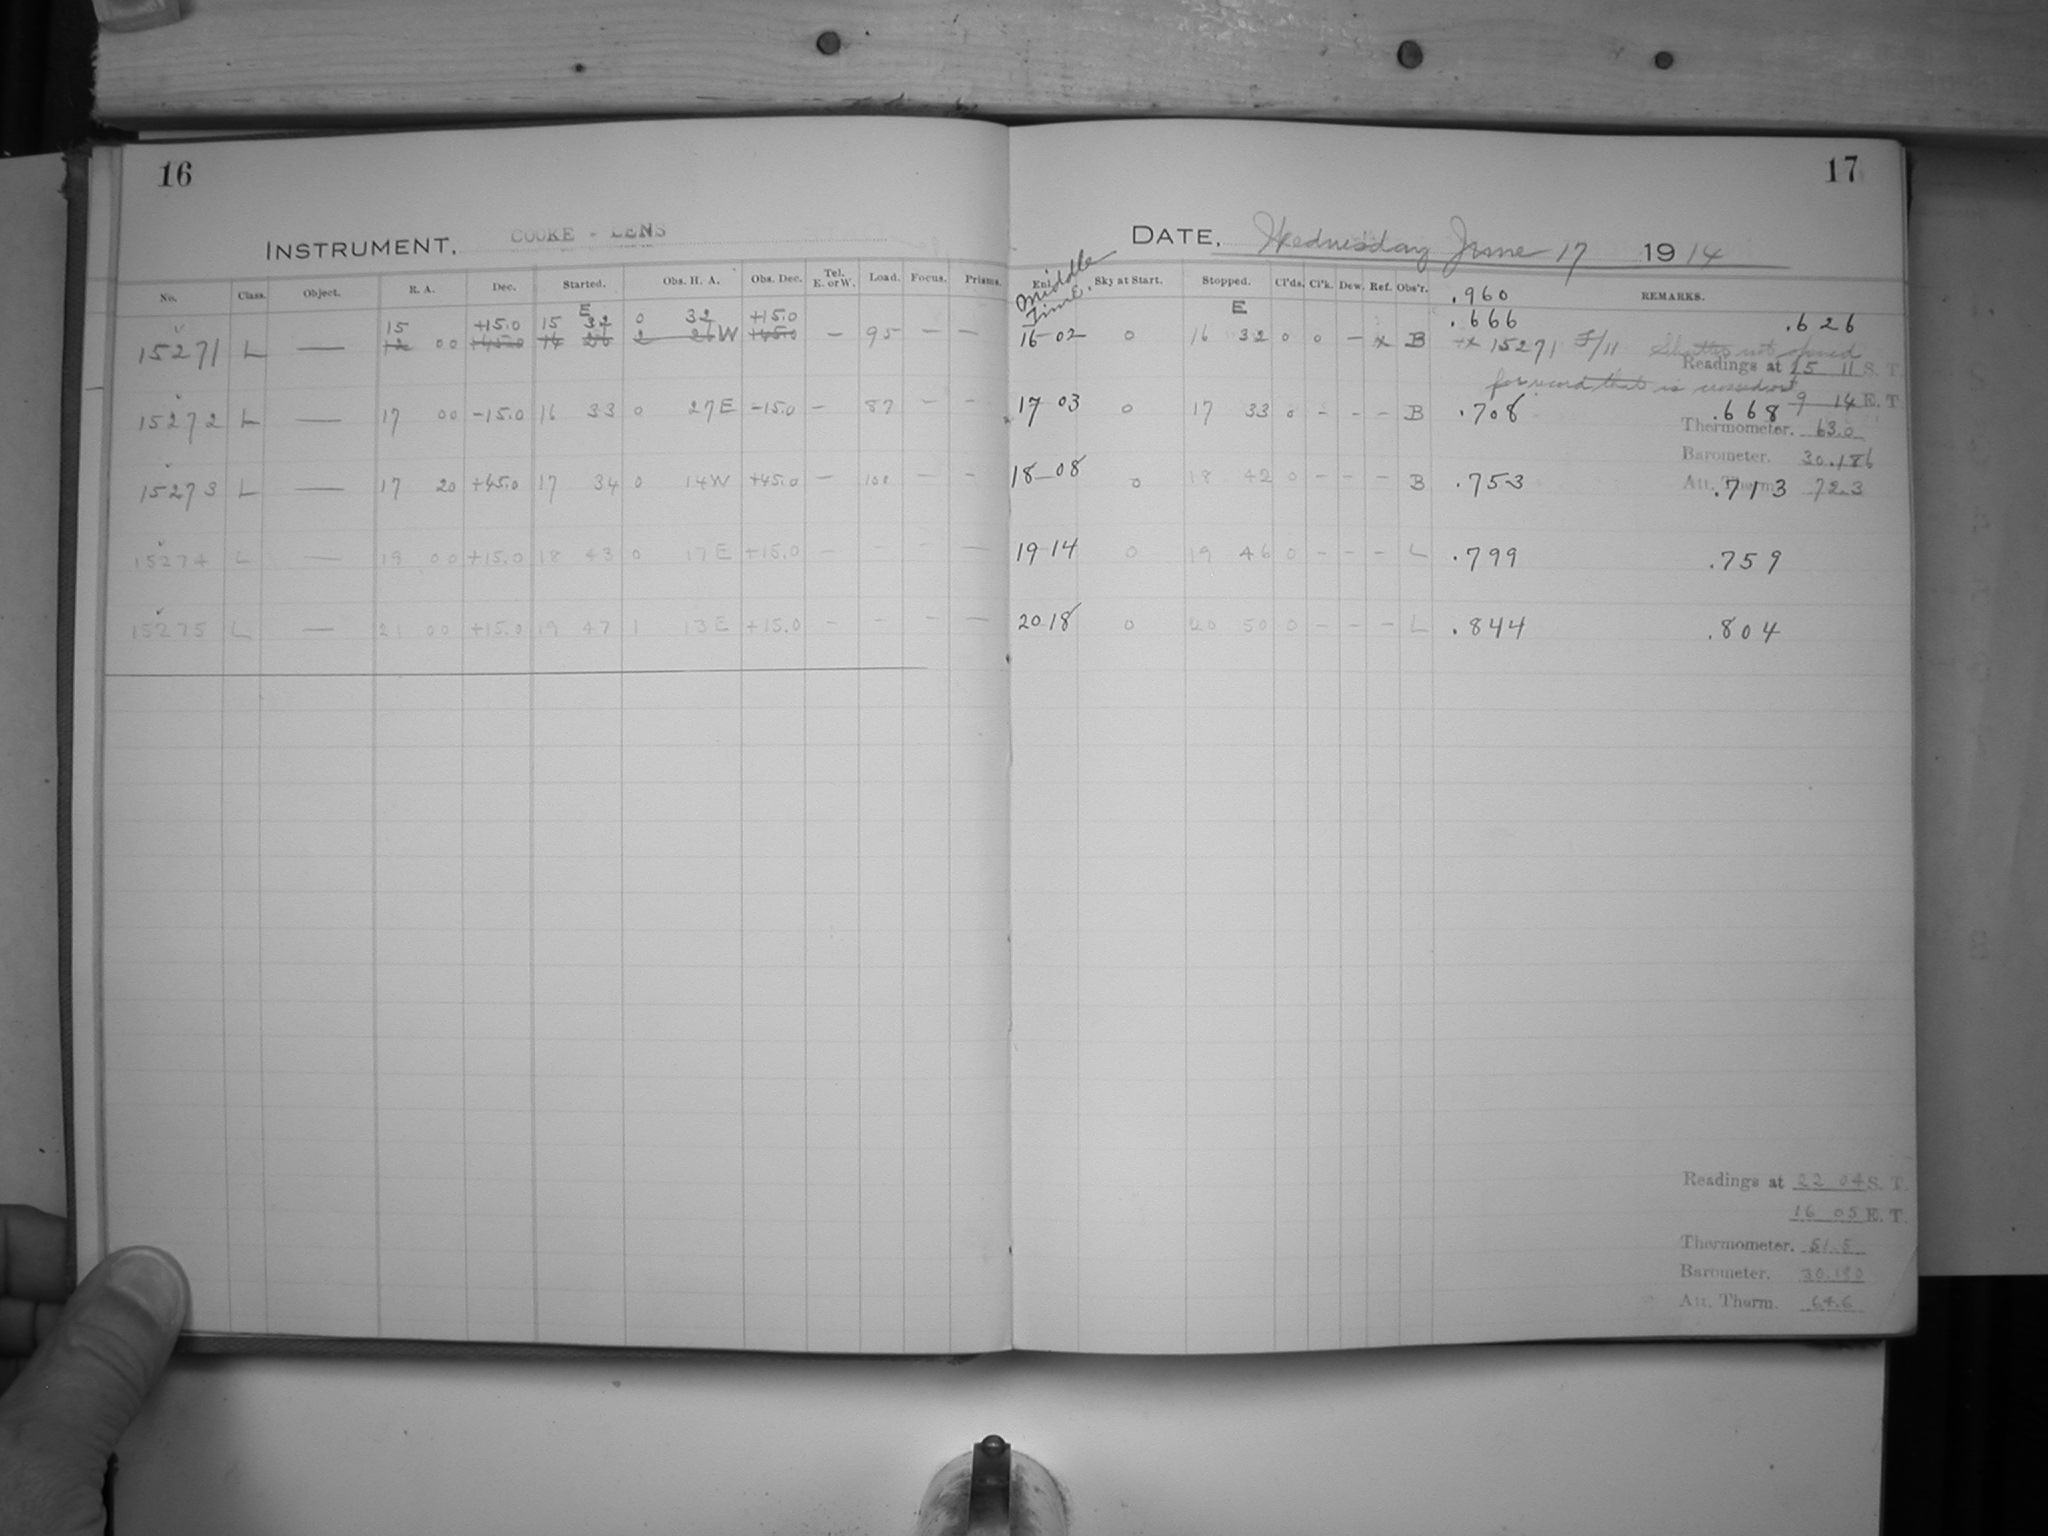 16
INSTRUMENT. COOKE - LENS
No. Class. Object. R. A. Dec. Started. Obs. H. A. Obs. Dec. Tel. E. or W. Load. Focus. Prisms.
E
15 +15.0 15 32 0 32 +15.0
15271 L — 12 00 +45.0 14 26 2 26 W +45.0 — 95 — —
15272 L — 17 00 -15.0 16 33 0 27 E -15.0 - 87 - -
15273 L — 17 20 +45.0 17 34 0 14 W +45.0 — 100 — -
15274 L — 19 00 +15.0 18 43 0 17 E +15.0 - - - —
15275 L — 21 00 +15.0 19 47 1 13 E +15.0 - - - —
17
DATE. Wednesday June 17 1914
Middle Time.
Enl. Sky at Start. Stopped. Cl'ds. Cl'k. Dew. Ref. Obs'r. REMARKS.
.960
E .666 .626
16-02 0 16 32 0 0 — x B x 15271 F/11 Shutter not opened
Readings at 15 11 S. T.
for record that is crossed out
9 14 E. T.
17 03 0 17 33 0 - - - B .708 .668
Thermometer. 63.0
Barometer. 30.186
18-08 0 18 42 0 - - - B .753 .713
Att. Therm. 72.3
19-14 0 19 46 0 - - - L .799 .759
20 18 0 20 50 0 - - - L .844 .804
Readings at 22 04 S. T.
16 05 E. T.
Thermometer. 51.5
Barometer. 30.190
Att. Therm. 64.6